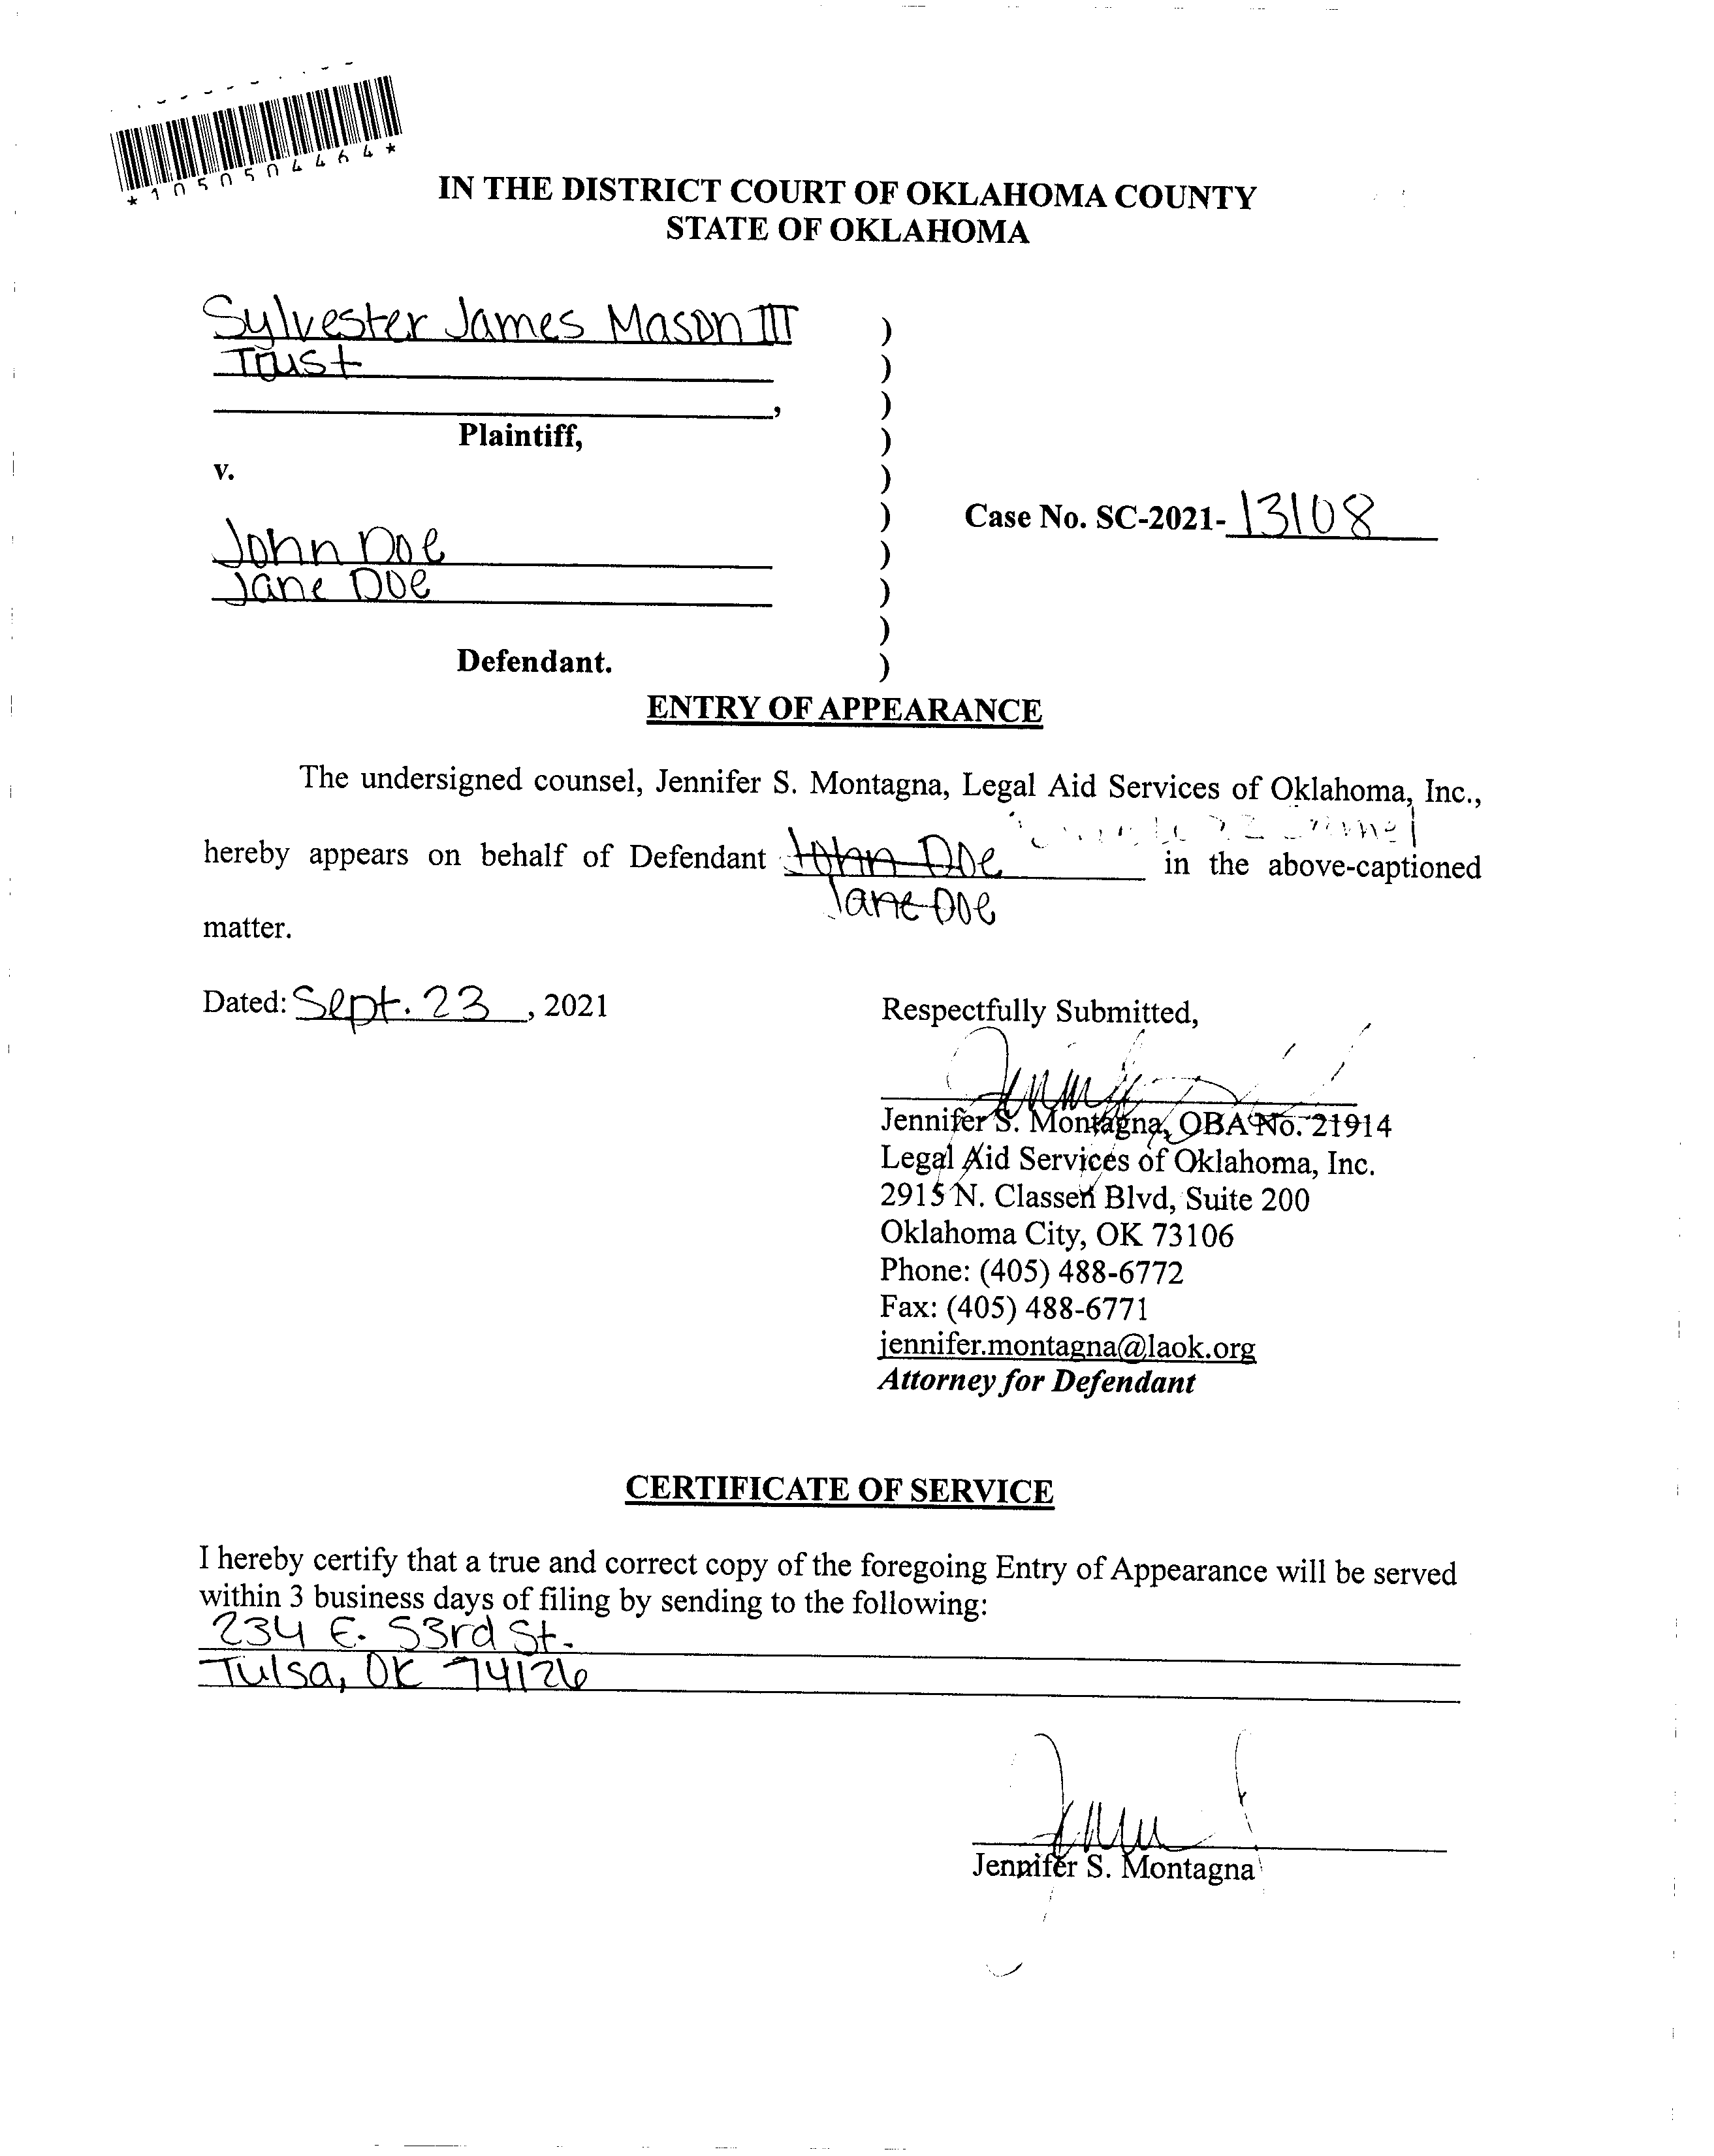 *1050504464*
IN THE DISTRICT COURT OF OKLAHOMA COUNTY
STATE OF OKLAHOMA
Sylvester James Mason III )
Trust )
, )
Plaintiff, )
v. )
) Case No. SC-2021-13108
John Doe )
Jane Doe )
)
Defendant. )
ENTRY OF APPEARANCE
The undersigned counsel, Jennifer S. Montagna, Legal Aid Services of Oklahoma, Inc.,
hereby appears on behalf of Defendant John Doe in the above-captioned
Jane Doe
matter.
Dated: Sept. 23, 2021
Respectfully Submitted,
Jennifer S. Montagna, OBA No. 21914
Legal Aid Services of Oklahoma, Inc.
2915 N. Classen Blvd, Suite 200
Oklahoma City, OK 73106
Phone: (405) 488-6772
Fax: (405) 488-6771
jennifer.montagna@laok.org
Attorney for Defendant
CERTIFICATE OF SERVICE
I hereby certify that a true and correct copy of the foregoing Entry of Appearance will be served
within 3 business days of filing by sending to the following:
234 E. 53rd St.
Tulsa, OK 74126
Jennifer S. Montagna